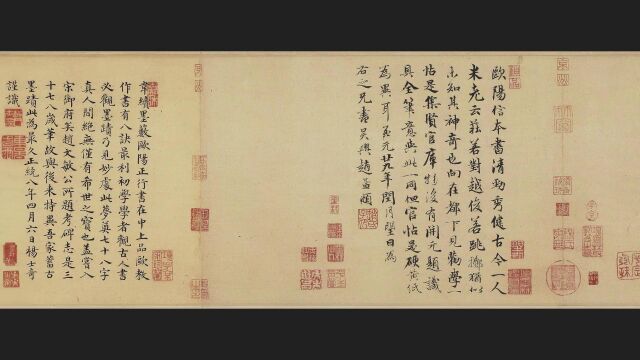 歐陽信本書清勁秀健古今一人
米老云莊若對越俊若跳擲猶似
未知其神奇也向在都下見勸學一
帖是集賢官庫物後有開元題識
具全筆意與此一同但官帖是硬黃紙
為異耳至元廿九年閏月望日為
右之兄書吳興趙孟頫
韋續墨藪歐陽正行書在中上品歐教
作書有八訣最利初學學者觀古人書
必觀墨蹟乃見妙處此夢奠七十八字
真人間絕無僅有希世之寶也盖嘗入
宋御府矣趙文敏公所題考碑志是三
十七八歲筆故與後來特異吾家蓄古
墨蹟此為最久正統八年四月六日楊士奇
謹識